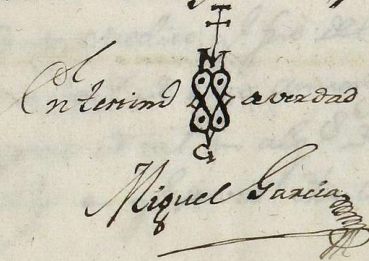 En testimo de verdad
Miguel Garcia